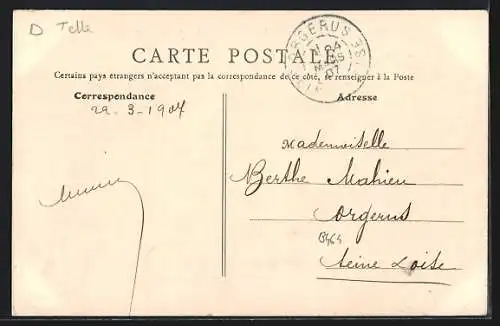 D Telle
CARTE POSTALE
Certains pays étrangers n'acceptant pas la correspondance de ce côté, se renseigner à la Poste
Correspondance
Adresse
ORGERUS
24
MARS
07
22-3-1907
Mademoiselle
Berthe Mahieu
Orgerus
B464
Seine Loise